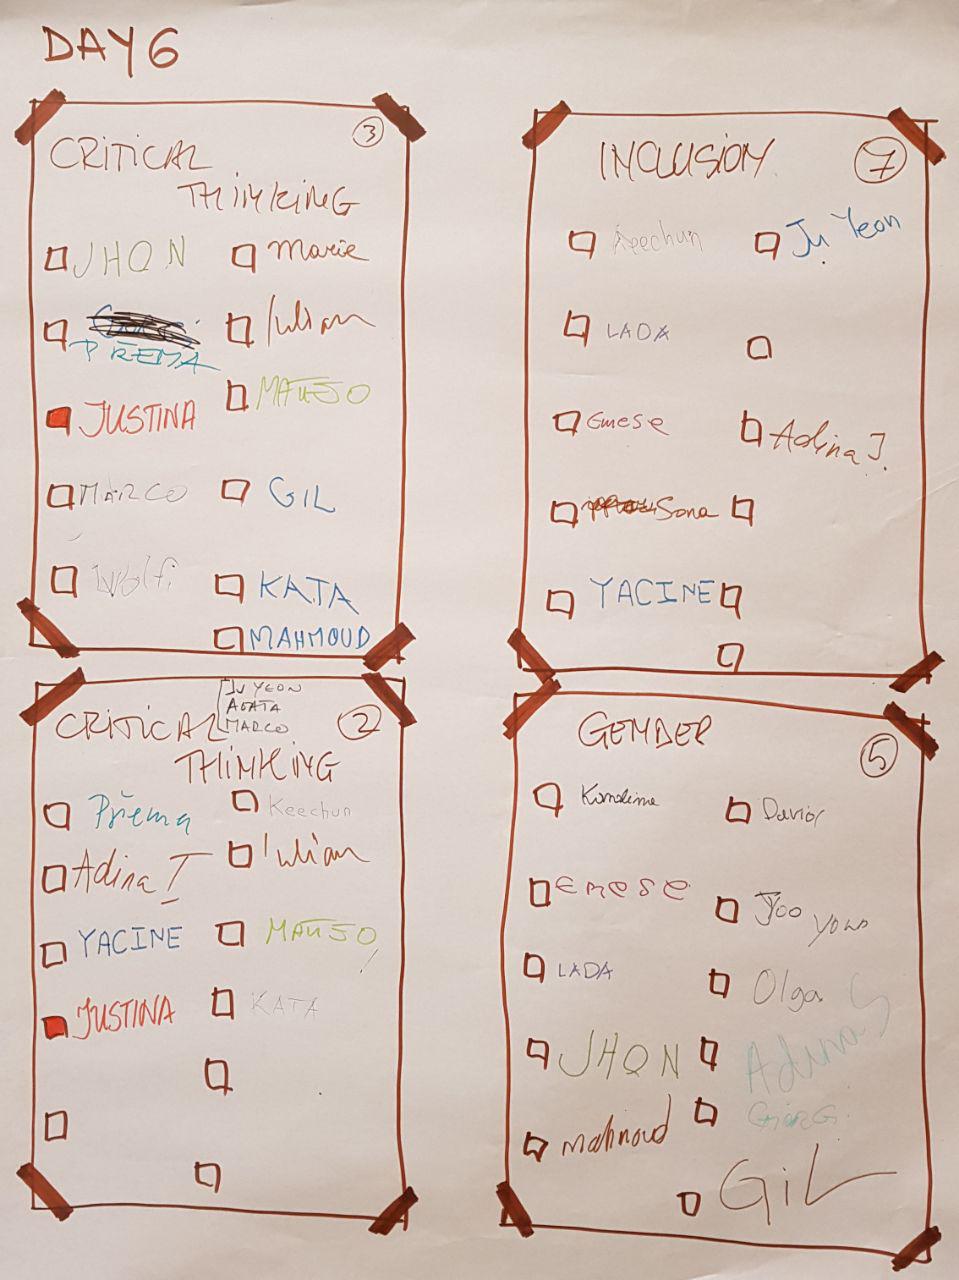 DAY 6
CRITICAL THINKING
3
JHON
Marie
PREMA
Iulian
JUSTINA
MAUSO
MARCO
GIL
Wolfi
KATA
MAHMOUD
INCLUSION
7
Keechun
Ju Yeon
LADA
Emese
Adina J.
Sona
YACINE
CRITICAL THINKING
JU YEON
AGATA
MARCO
2
Prema
Keechun
Adina T
Iulian
YACINE
MAUSO
JUSTINA
KATA
GENDER
5
David
EMESE
Joo
LADA
Olga
JHON
Adina S
Mahmoud
GiL